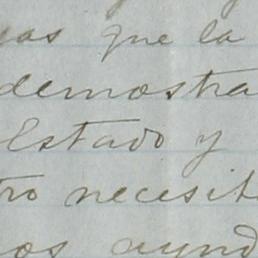 que la
demostra
Estado y
tro necesit
os ayud